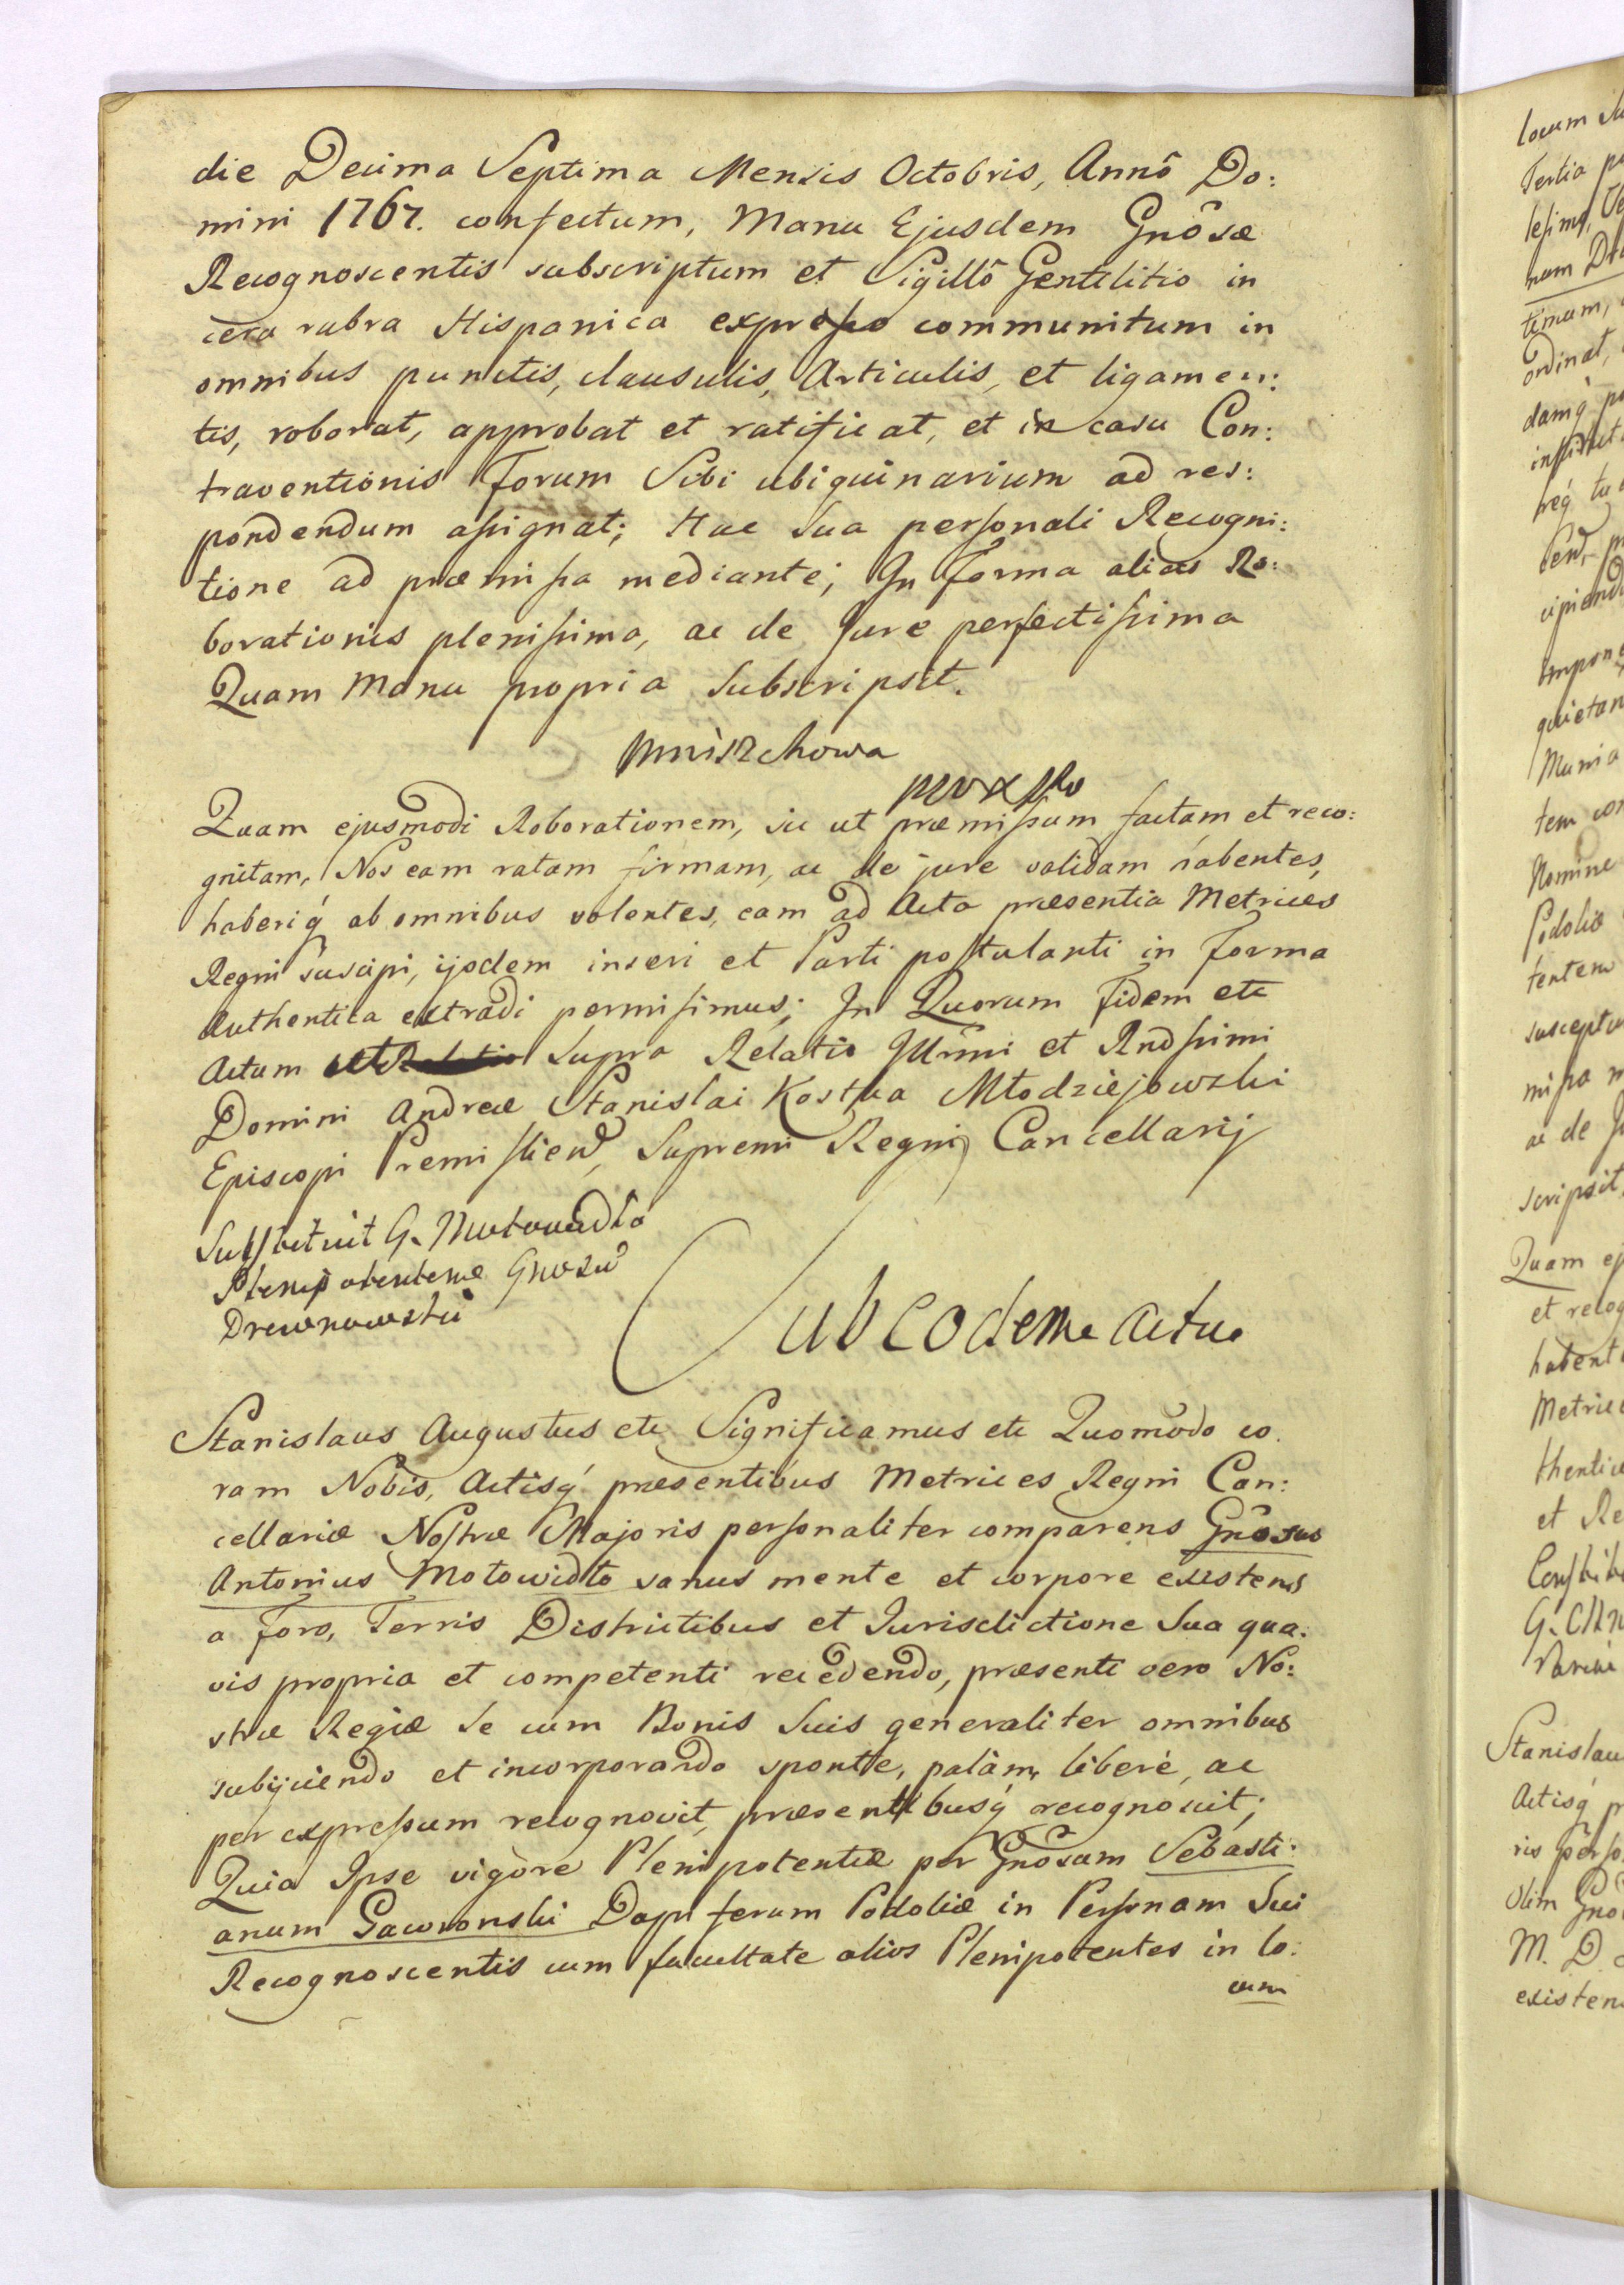 die Decima Septima Mensis Octobris, Annô Do:
mini 1767. confectum, Manu Ejusdem Gnôsæ
Recognoscentis subscriptum et Sigillô Gentilitio in
cera rubra Hispanica expresso communitum in
omnibus punctis, clausulis, Articulis, et ligamen:
tis, roborat, approbat et ratificat, et in casu Con:
traventionis Forum Sibi ubiquinarium ad res:
pondendum assignat; Hac Sua personali Recogni:
tione ad præmissa mediante; In Forma alias Ro:
borationis plenissima, ac de Jure perfectissima
Quam Manu propria Subscripsit.
Mniszchowa
Quam ejusmodi Roborationem, sic ut præmissum factam et reco:
gnitam, Nos eam ratam firmam, ac de jure validam habentes,
haberiq́ ab omnibus volentes, eam ad Acta præsentia Metrices
Regni suscipi, ijsdem inseri et Parti postulanti in Forma
Authentica extradi permisimus; In Quorum Fidem etc
Actum Supra Relatio Illr̃mi et Rndssimi
Domini Andreæ Stanislai Kostka Młodziejowski
Episcopi Premislien̄, Supremi Regni Cancellarij
Substituit G. Motowidło
Plenipotentem Gnosū
Drewnowski
Sub eodem Actu
Stanislaus Augustus etc Significamus etc Quomodo co.
ram Nobis, Actisq́ præsentibus Metrices Regni Can:
cellariæ Nostræ Majoris personaliter comparens Gnôsus
Antonius Motowidło sanus mente et corpore existens
a Foro, Terris Districtibus et Jurisdictione Sua qua.
vis propria et competenti recedendo, præsenti vero No:
stræ Regiæ se cum Bonis Suis generaliter omnibus
subijciendo et incorporando sponte, palàm, liberè, ac
per expressum recognovit, præsentibusq́ recognoscit;
Quia Ipse vigore Plenipotentiæ per Gnôsum Sebasti:
anum Gaworonski Dapiferum Podoliæ in Personam Sui
Recognoscentis cum facultate alios Plenipotentes in lo:
cum